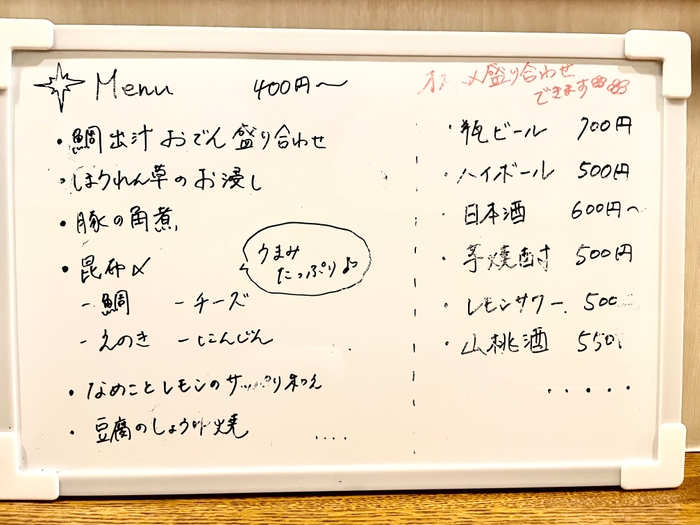 Menu 400円〜
・鯛出汁おでん盛り合わせ
・ほうれん草のお浸し
・豚の角煮
・昆布〆
- 鯛 - チーズ
- えのき - にんじん
うまみ
たっぷり♪
・なめことレモンのサッパリ和え
・豆腐のしょうが焼
....
盛り合わせ
できます
・瓶ビール 700円
・ハイボール 500円
・日本酒 600円〜
・芋焼酎 500円
・レモンサワー 500
・山桃酒 550
.....